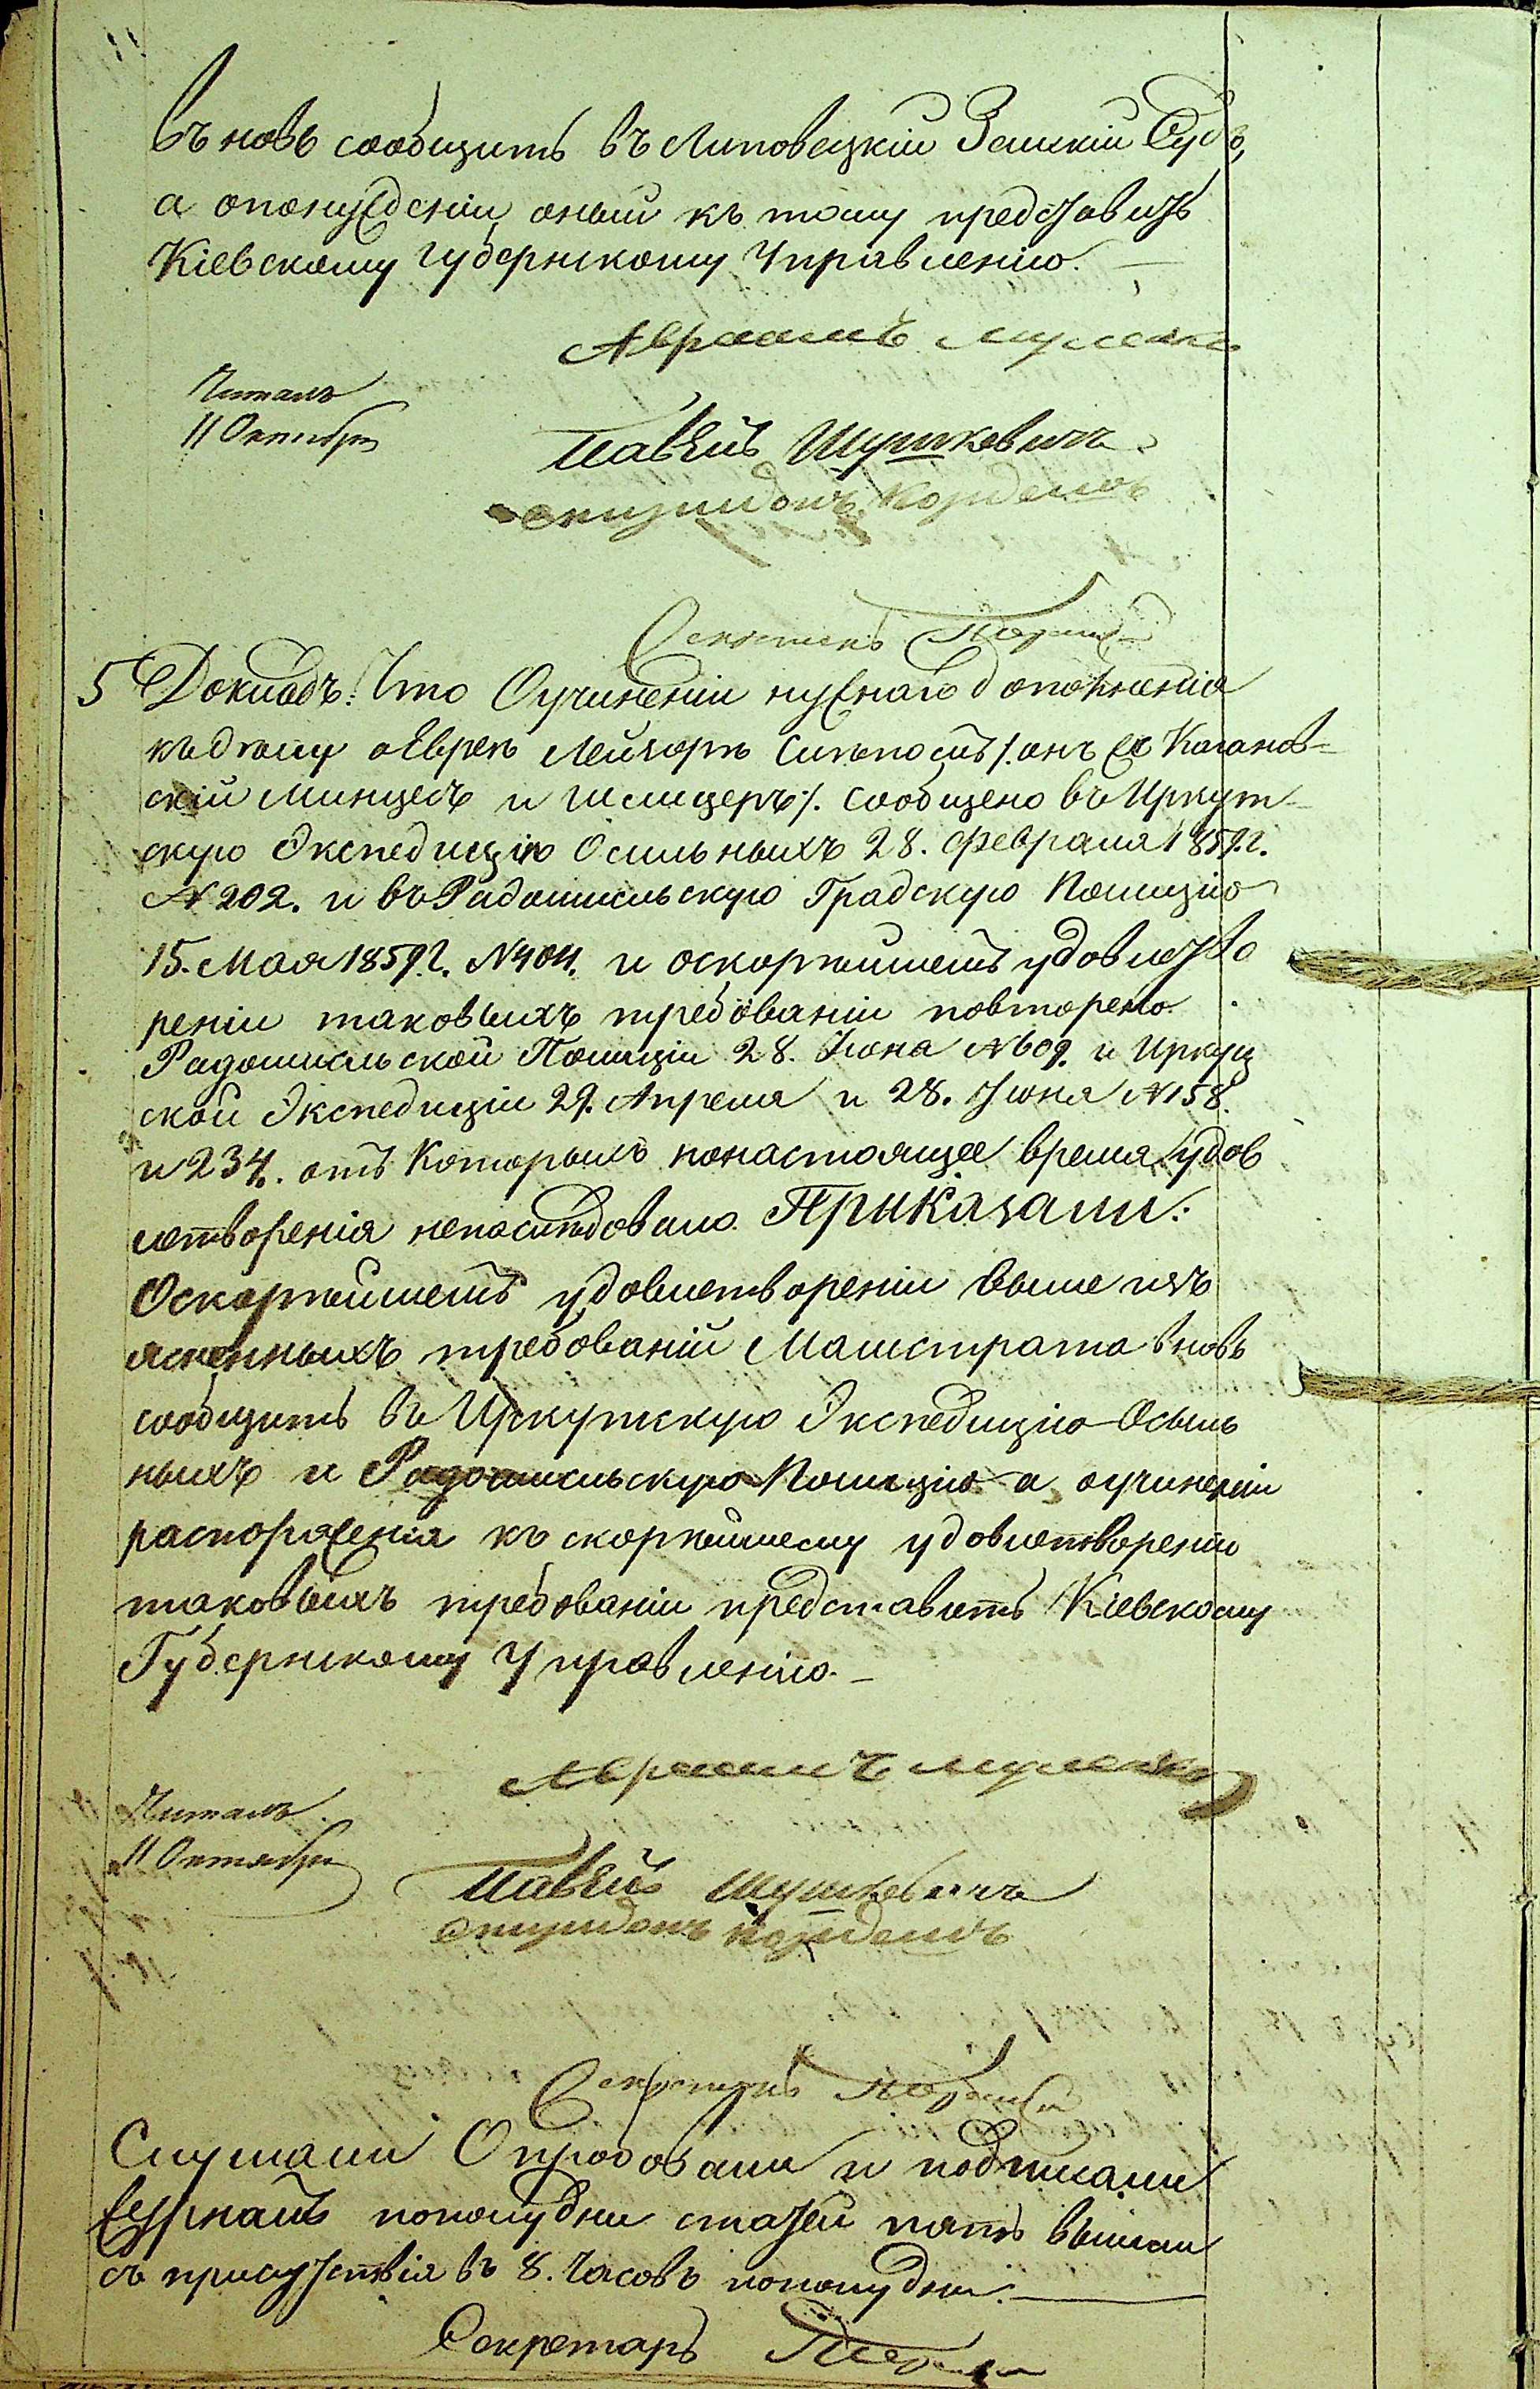 въ новь сообщить въ Липовецкій Земскій Судъ,
а опонужденіи оный къ тому представить
Кіевскому Губернскому Управленію. —
Авраамъ
Читалъ
11 Октября
Павелъ Шушкевичъ
Секретарь
5 Докладъ: Что Оучиненіи нужнаго дополненія
къ дѣлу оЕвреѣ Лейзорѣ /: онъ же Каганов=
скій Минцесъ и Шмицеръ :/. сообщено въ Иркут-
скую Экспедицію Осыльныхъ 28. Февраля 1859.г.
№ 202. и въ Радомысльскую Градскую Полицію
15. Мая 1859.г. № 404. и оскорѣйшемъ удовлетво
реніи таковыхъ требованій повторено
Радомысльской Полиціи 28. Іюня № 609. и Иркуц
ской Экспедиціи 29. Апреля и 28. Іюня № 158.
и 234. отъ Которыхъ понастоящее время удов
летворенія непослѣдовало. Приказали:
Оскорѣйшемъ удовлетвореніи выше изъ
ясненныхъ требованій Магистрата вновь
сообщить въ Иркутскую Экспедицію Осыль
ныхъ и Радомысльскую Полицію а оучиненіи
распоряженія къ скорѣйшему удовлетворенію
таковыхъ требованій представить Кіевскому
Губернскому Управленію. —
Авраамъ
Читалъ
11 Октября
Павелъ Шушкевичъ
Секретарь
Слушали Опробовали и подписали
журналъ пополудни статей пять вышли
съ присутствія въ 8. часовъ пополудни. —
Секретарь